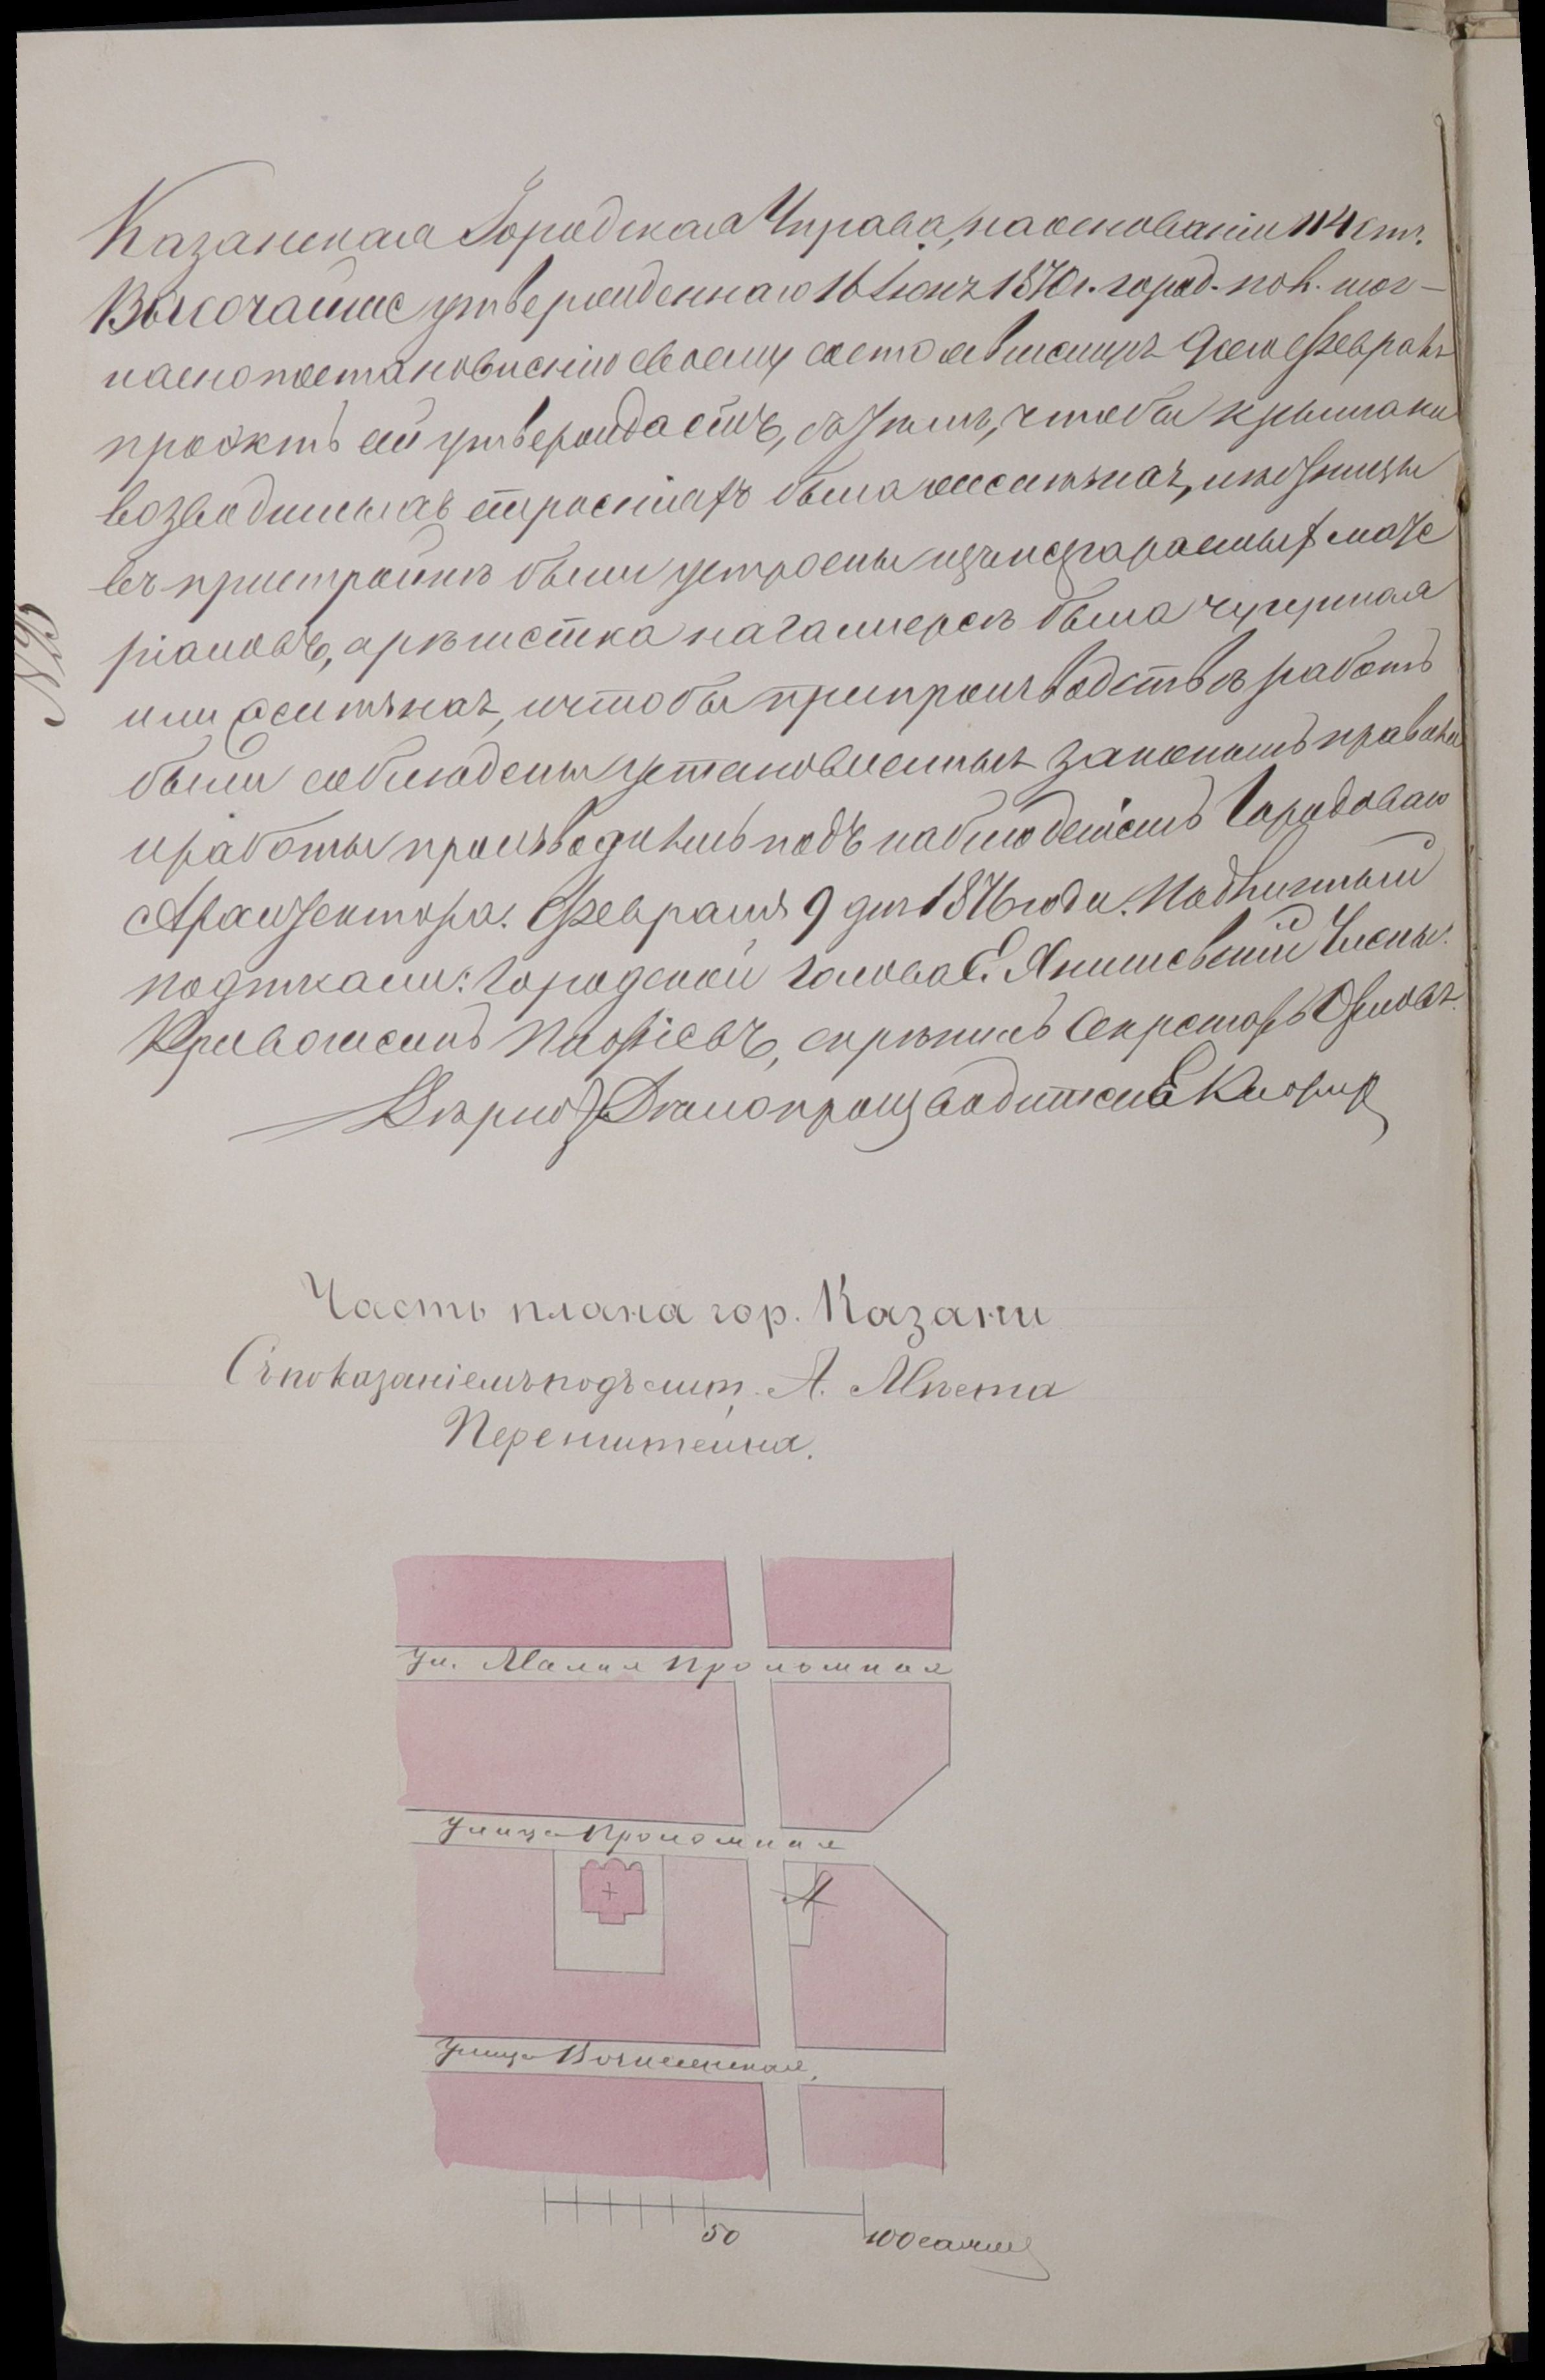 Казанская Городская Управа, на основаніи 114 ст.
Высочайше утвержденнаго 16 Іюня 1870 г. город. пол. сог-
ласно постановленію своему состоявшемуся 9 сего Февраля
проэктъ сей утверждаетъ, съ тѣмъ, чтобы крыша на
возводимыхъ строеніяхъ была желѣзная, лѣстницы
въ пристройкѣ были устроены изъ несгараемыхъ мате
ріаловъ, а рѣшетка на галлереѣ была чугунная
или желѣзная, и чтобы при производствѣ работъ
были соблюдены установленныя закономъ правила
и работы производились подъ наблюденіемъ Городоваго
Архитектора. Февраля 9 дня 1876 года. Подлинный
подписали: Городской Голова Е. Янишевскій Члены:
скрѣпилъ Секретарь
Вѣрно: Дѣлопроизводитель Е
№
Часть плана гор. Казани
Съ показаніемъ подъ лит. А. Мѣста
Перенштейна.
ул. Малая Проломная
улица Проломная
А
улица Вознесенская.
50 100 сажен